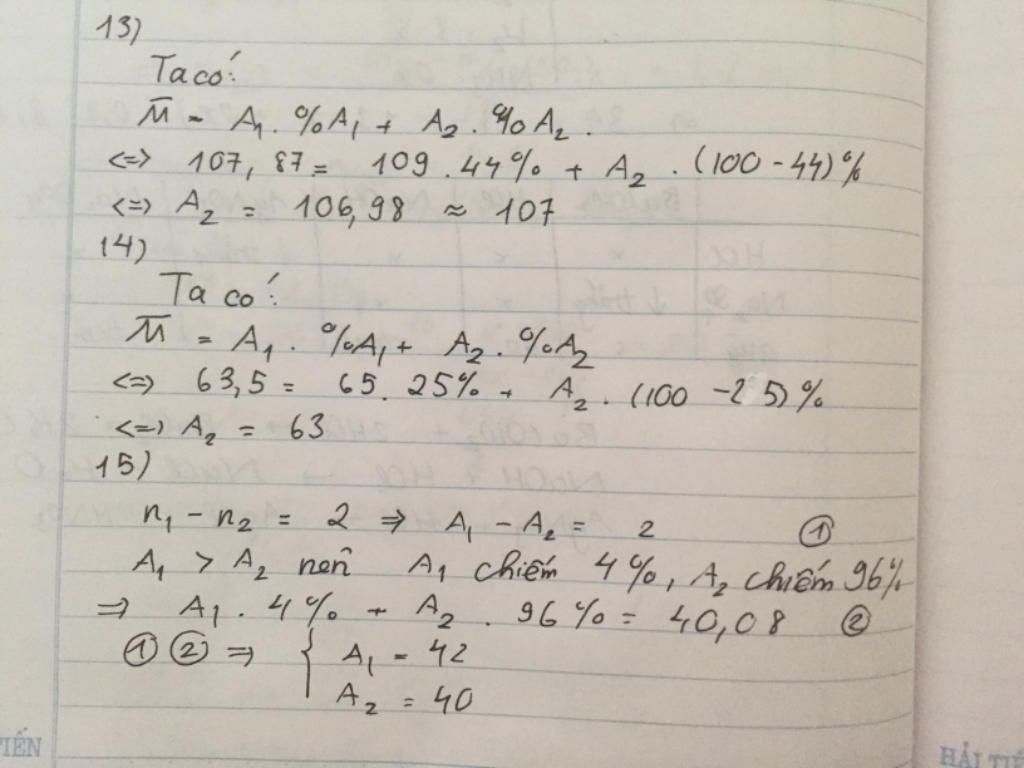 13)
Ta có:
M̅ = A₁ . %A₁ + A₂ . %A₂ .
<=> 107,87 = 109 . 44% + A₂ . (100 - 44)%
<=> A₂ = 106,98 ≈ 107
14)
Ta có:
M̅ = A₁ . %A₁ + A₂ . %A₂
<=> 63,5 = 65 . 25% + A₂ . (100 - 25)%
<=> A₂ = 63
15)
n₁ - n₂ = 2 => A₁ - A₂ = 2 ①
A₁ > A₂ nên A₁ chiếm 4%, A₂ chiếm 96%
=> A₁ . 4% + A₂ . 96% = 40,08 ②
① ② => { A₁ = 42
A₂ = 40
TIẾN
HẢI TIẾ